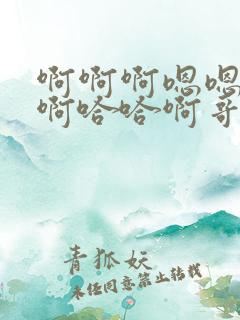 啊啊啊嗯嗯
啊哈哈啊哥
青狐妖
未经同意禁止转载